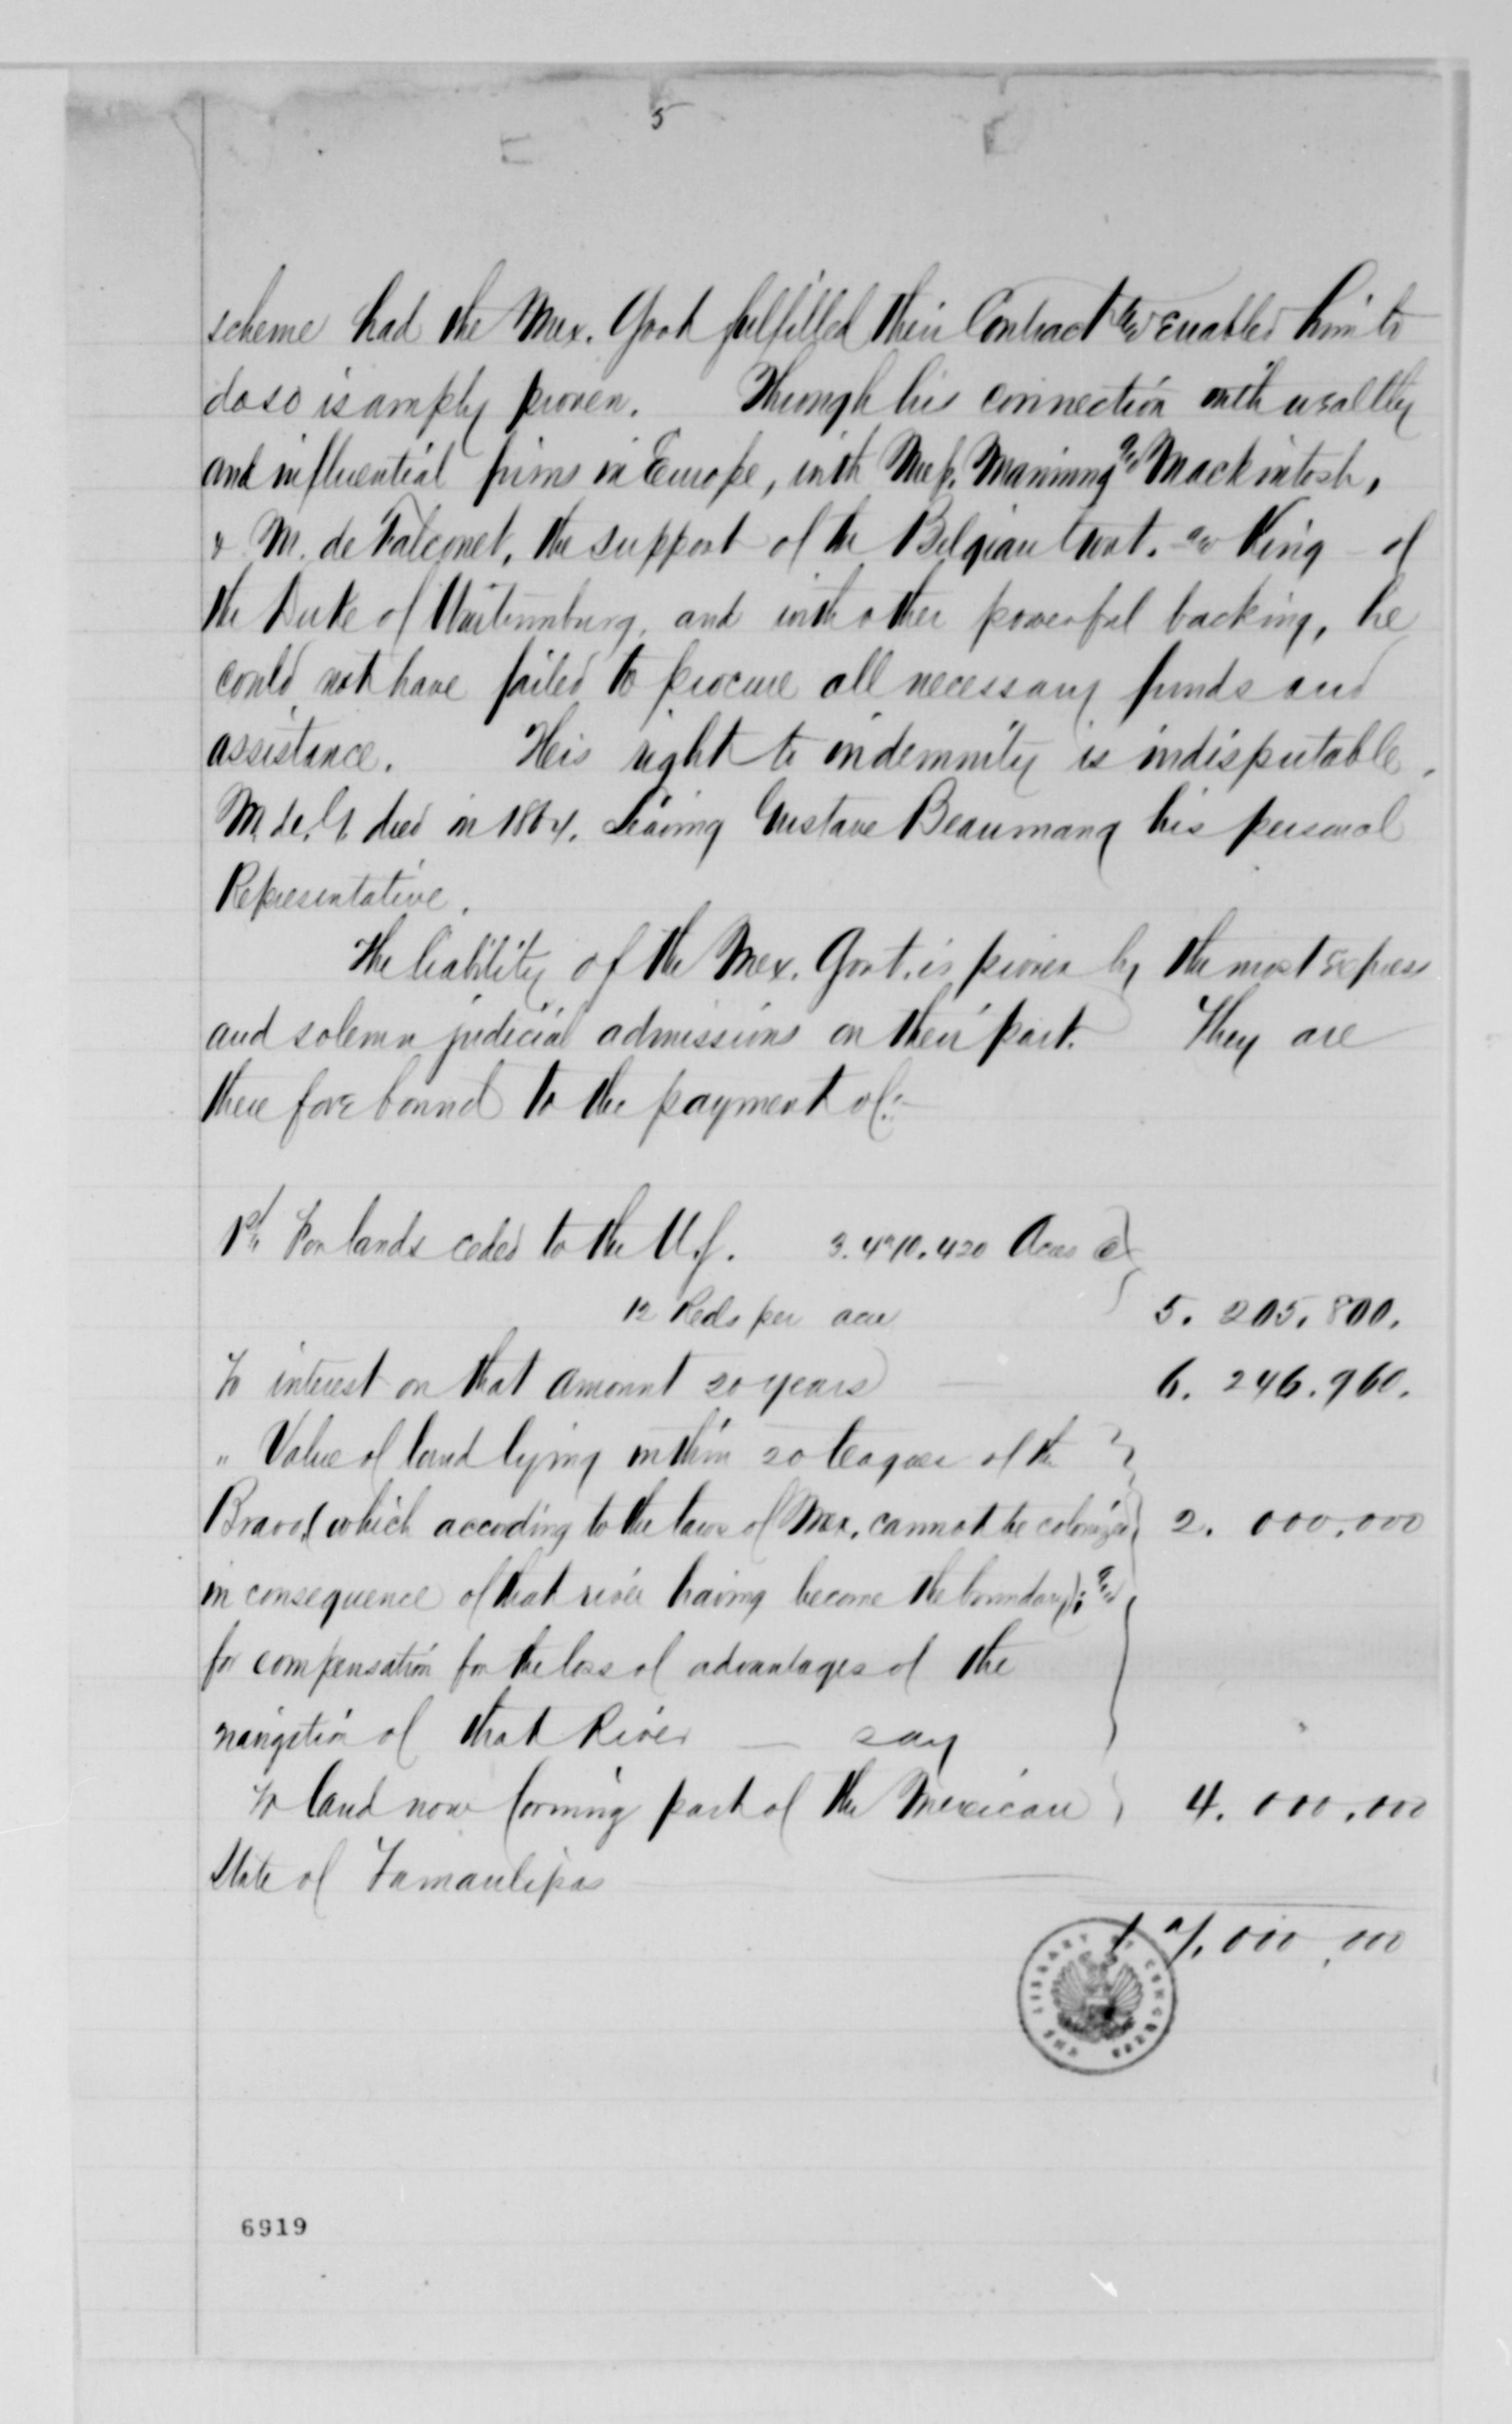 5
scheme had the Mex. Govt fulfilled their Contract and enabled him to
do so is amply proven. Through his connection with wealthy
and influential firms in Europe, with Mess. Manning and Mackintosh,
& M. de Falconet, the support of the Belgian Govt. and King - of
the Duke of Wurtemburg, and with other powerful backing, he
could not have failed to procure all necessary funds and
assistance. His right to indemnity is indisputable.
M. de G. died in 1864, leaving Gustave his personal
Representative.
The liability of the Mex. Govt. is proven by the most express
and solemn judicial admissions on their part. They are
therefore bound to the payment of:-
1st. For lands ceded to the U.S. 3.470.420 Acres @
12 Reals per acre 5. 205. 800.
To interest on that amount 20 years — 6. 246. 960.
" Value of land lying within 20 leagues of the
Bravo (which according to the laws of Mex. cannot be colonized 2. 000.000
in consequence of that river having become the boundary); and
for compensation for the loss of advantages of the
navigation of that River — say
To land now forming part of the Mexican 4. 000.000
State of Tamaulipas
17.000,000
THE LIBRARY OF CONGRESS
6919